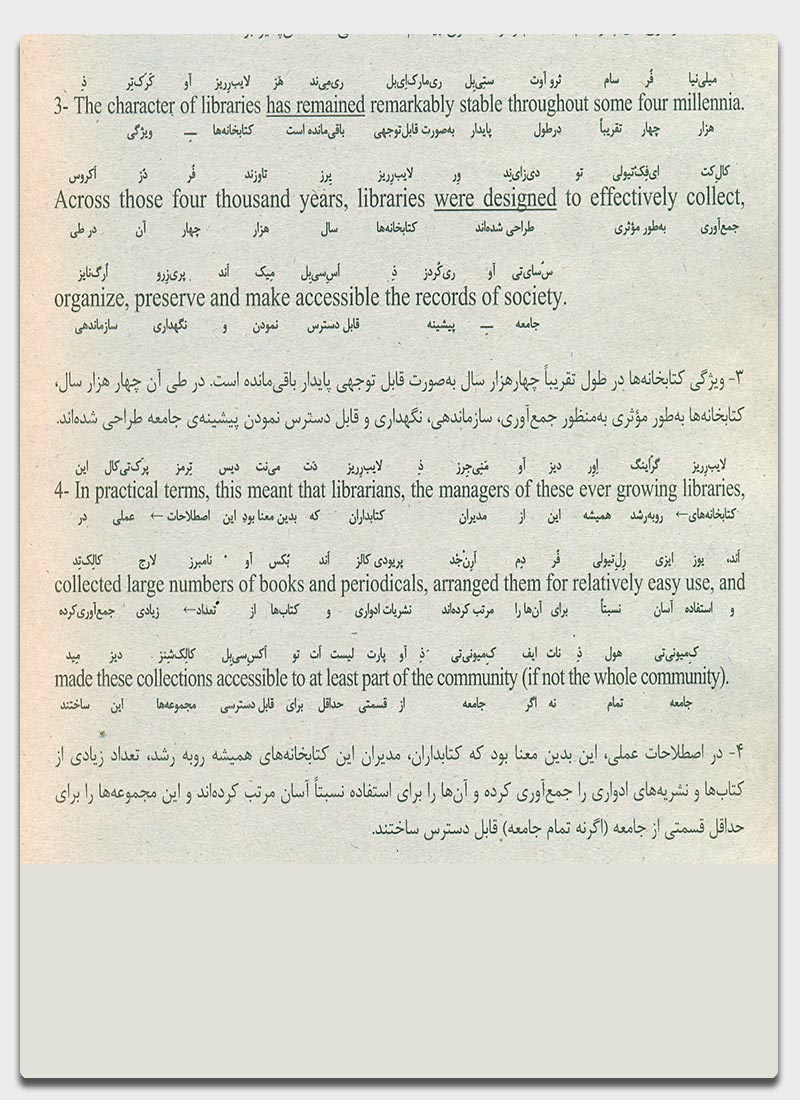 میلی‌نیا فُر سام ثرو آوت ستِی‌بِل ری‌مارک‌اِی‌بل ری‌مِی‌ند هَز لایب‌رِریز آو کَرَک‌تِر ذِ
3- The character of libraries has remained remarkably stable throughout some four millennia.
هزار چهار تقریباً درطول پایدار به‌صورت قابل‌توجهی باقی‌مانده است کتابخانه‌ها ـِـ ویژگی
کالِ‌کت ای‌فِک‌تیولی تو دی‌زای‌نِد وِر لایب‌رِریز یِرز تاوزند فُر ذُز اَکروس
Across those four thousand years, libraries were designed to effectively collect,
جمع‌آوری به‌طور مؤثری طراحی شده‌اند کتابخانه‌ها سال هزار چهار آن در طی
سُ‌سای‌تی آو ری‌کُردز ذِ اَس‌سی‌بِل مِیک اَند پری‌زِرو اُرگ‌نایز
organize, preserve and make accessible the records of society.
جامعه ـِـ پیشینه قابل دسترس نمودن و نگهداری سازماندهی
۳- ویژگی کتابخانه‌ها در طول تقریباً چهارهزار سال به‌صورت قابل توجهی پایدار باقی‌مانده است. در طی آن چهار هزار سال،
کتابخانه‌ها به‌طور مؤثری به‌منظور جمع‌آوری، سازماندهی، نگهداری و قابل دسترس نمودن پیشینه‌ی جامعه طراحی شده‌اند.
لایب‌رِریز گراُینگ اِوِر دیز آو مَنِی‌جِرز ذِ لایب‌رِریز دَت مِی‌نت دیس تِرمز پرَک‌تی‌کال این
4- In practical terms, this meant that librarians, the managers of these ever growing libraries,
کتابخانه‌های← روبه‌رشد همیشه این از مدیران کتابداران که بدین معنا بود این اصطلاحات ← عملی در
اَند، یوز ایزی رِلِ‌تیولی فُر دِم اَرِن‌جُد پریودی کالز اَند بُکس آو نامبرز لارج کالِک‌تِد
collected large numbers of books and periodicals, arranged them for relatively easy use, and
و استفاده آسان نسبتاً برای آن‌ها را مرتب کرده‌اند نشریات ادواری و کتاب‌ها از تعداد← زیادی جمع‌آوری‌کرده
کِ‌میونی‌تی هول ذِ نات ایف کِ‌میونی‌تی ذِ آو پارت لیست اَت تو اَکس‌سی‌بل کالِک‌شِنز دیز مِید
made these collections accessible to at least part of the community (if not the whole community).
جامعه تمام نه اگر جامعه از قسمتی حداقل برای قابل دسترسی مجموعه‌ها این ساختند
۴- در اصطلاحات عملی، این بدین معنا بود که کتابداران، مدیران این کتابخانه‌های همیشه روبه رشد، تعداد زیادی از
کتاب‌ها و نشریه‌های ادواری را جمع‌آوری کرده و آن‌ها را برای استفاده نسبتاً آسان مرتب کرده‌اند و این مجموعه‌ها را برای
حداقل قسمتی از جامعه (اگرنه تمام جامعه) قابل دسترس ساختند.